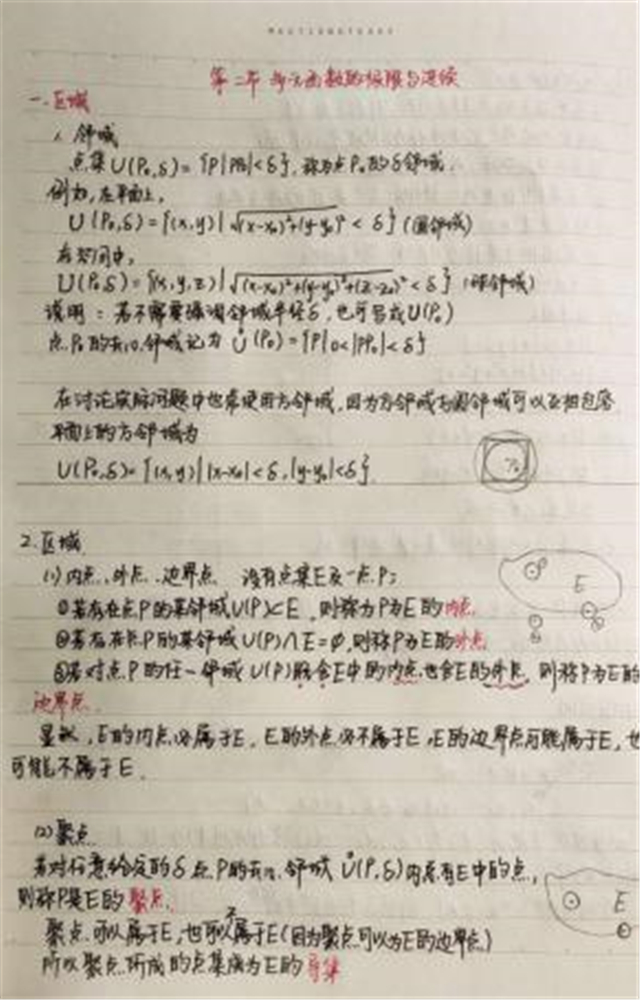 第二节 多元函数的极限与连续
一.区域
1.邻域
点集U(P₀,δ)={P||PP₀|<δ},称为点P₀的δ邻域.
例如,在平面上,
U(P₀,δ)={(x,y)|√(x-x₀)²+(y-y₀)²<δ}(圆邻域)
在空间中,
U(P₀,δ)={(x,y,z)|√(x-x₀)²+(y-y₀)²+(z-z₀)²<δ}(球邻域)
说明:若不需要强调邻域半径δ,也可写成U(P₀)
点P₀的去心邻域记为 Ů(P₀)={P|0<|PP₀|<δ}
在讨论实际问题中也常使用方邻域,因为方邻域与圆邻域可以互相包容
平面上的方邻域为
U(P₀,δ)={(x,y)||x-x₀|<δ,|y-y₀|<δ}
P₀
2.区域
(1)内点、外点、边界点 设有点集E及一点P:
P E
①若存在点P的某邻域U(P)⊂E,则称为P为E的内点
②若存在点P的某邻域U(P)∩E=∅,则称P为E的外点
③若对点P的任一邻域U(P)既含E中的内点也含E的外点,则称P为E的
边界点.
显然,E的内点必属于E,E的外点必不属于E,E的边界点可能属于E,也
可能不属于E.
(2)聚点
若对任意给定的δ,点P的去心邻域Ů(P,δ)内总有E中的点,
则称P是E的聚点.
E
聚点可以属于E,也可以不属于E(因为聚点可以为E的边界点)
所以聚点所成的点集成为E的导集